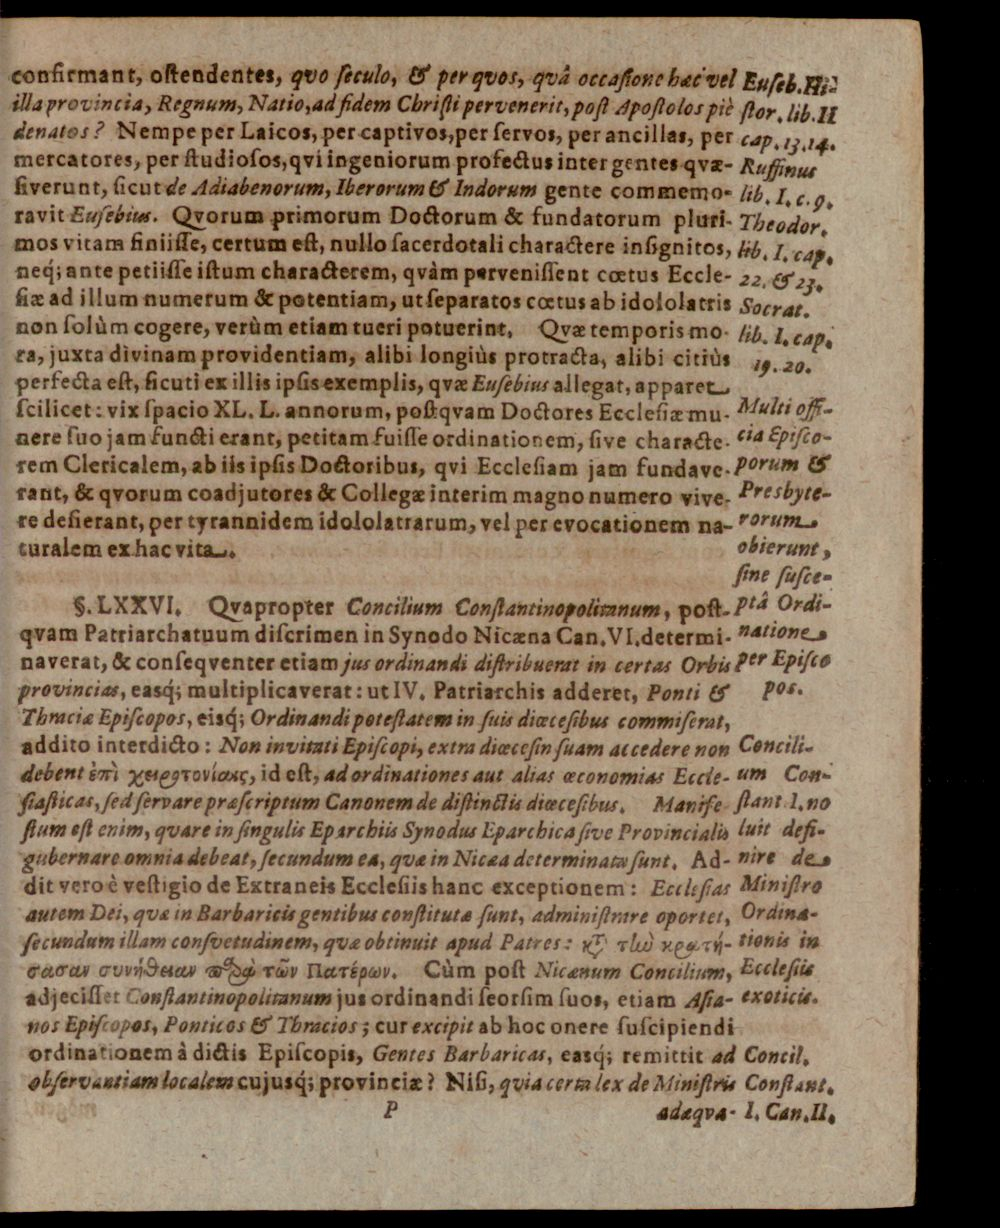 confirmant, ostendentes, qvo seculo, & per qvos, qvâ occasione hæc vel
illa provincia, Regnum, Natio, ad fidem Christi pervenerit, post Apostolos piè
denatos? Nempe per Laicos, per captivos, per servos, per ancillas, per
mercatores, per studiosos, qvi ingeniorum profectus inter gentes qvæ-
siverunt, sicut de Adiabenorum, Iberorum & Indorum gente commemo-
ravit Eusebius. Qvorum primorum Doctorum & fundatorum pluri-
mos vitam finiisse, certum est, nullo sacerdotali charactere insignitos,
neq; ante petiisse istum characterem, qvàm pervenissent cœtus Eccle-
siæ ad illum numerum & potentiam, ut separatos cœtus ab idololatris
non solùm cogere, verùm etiam tueri potuerint. Qvæ temporis mo-
ra, juxta divinam providentiam, alibi longiùs protracta, alibi citiùs
perfecta est, sicuti ex illis ipsis exemplis, qvæ Eusebius allegat, apparet
scilicet: vix spacio XL. L. annorum, postqvam Doctores Ecclesiæ mu-
nere suo jam functi erant, petitam fuisse ordinationem, sive characte-
rem Clericalem, ab iis ipsis Doctoribus, qvi Ecclesiam jam fundave-
rant, & qvorum coadjutores & Collegæ interim magno numero vive-
re desierant, per tyrannidem idololatrarum, vel per evocationem na-
turalem ex hac vita.
§. LXXVI. Qvapropter Concilium Constantinopolitanum, post-
qvam Patriarchatuum discrimen in Synodo Nicæna Can. VI. determi-
naverat, & conseqventer etiam jus ordinandi distribuerat in certas Orbis
provincias, easq; multiplicaverat: ut IV. Patriarchis adderet, Ponti &
Thraciæ Episcopos, eisq; Ordinandi potestatem in suis diœcesibus commiserat,
addito interdicto: Non invitati Episcopi, extra diœcesin suam accedere non
debent ἐπὶ χειροτονίαις, id est, ad ordinationes aut alias œconomias Eccle-
siasticas, sed servare præscriptum Canonem de distinctis diœcesibus. Manife
stum est enim, qvare in singulis Eparchiis Synodus Eparchica sive Provincialis
gubernare omnia debeat, secundum ea, qvæ in Nicæa determinata sunt. Ad-
dit vero è vestigio de Extraneis Ecclesiis hanc exceptionem: Ecclesias
autem Dei, qvæ in Barbaricis gentibus constitutæ sunt, administrare oportet,
secundum illam consvetudinem, qvæ obtinuit apud Patres: κ̀ τὼ κρατή-
σασαν συνήθειαν παρὰ τῶν Πατέρων. Cùm post Nicænum Concilium,
adjecisset Constantinopolitanum jus ordinandi seorsim suos, etiam Asia-
nos Episcopos, Ponticos & Thracios; cur excipit ab hoc onere suscipiendi
ordinationem à dictis Episcopis, Gentes Barbaricas, easq; remittit ad
observantiam localem cujusq; provinciæ? Nisi, qvia certa lex de Ministris
P
adæqva-
Euseb. Hi-
stor. lib. II
cap. 13. 14.
Ruffinus
lib. I. c. 9.
Theodor.
lib. I. cap.
22. & 23.
Socrat.
lib. I. cap.
19. 20.
Multi offi-
cia Episco-
porum &
Presbyte-
rorum
obierunt,
sine susce-
ptâ Ordi-
natione
per Episco
pos.
Concili-
um Con-
stant I. no
luit defi-
nire de
Ministro
Ordina-
tionis in
Ecclesiis
exoticis.
Concil.
Constant.
I. Can. II.